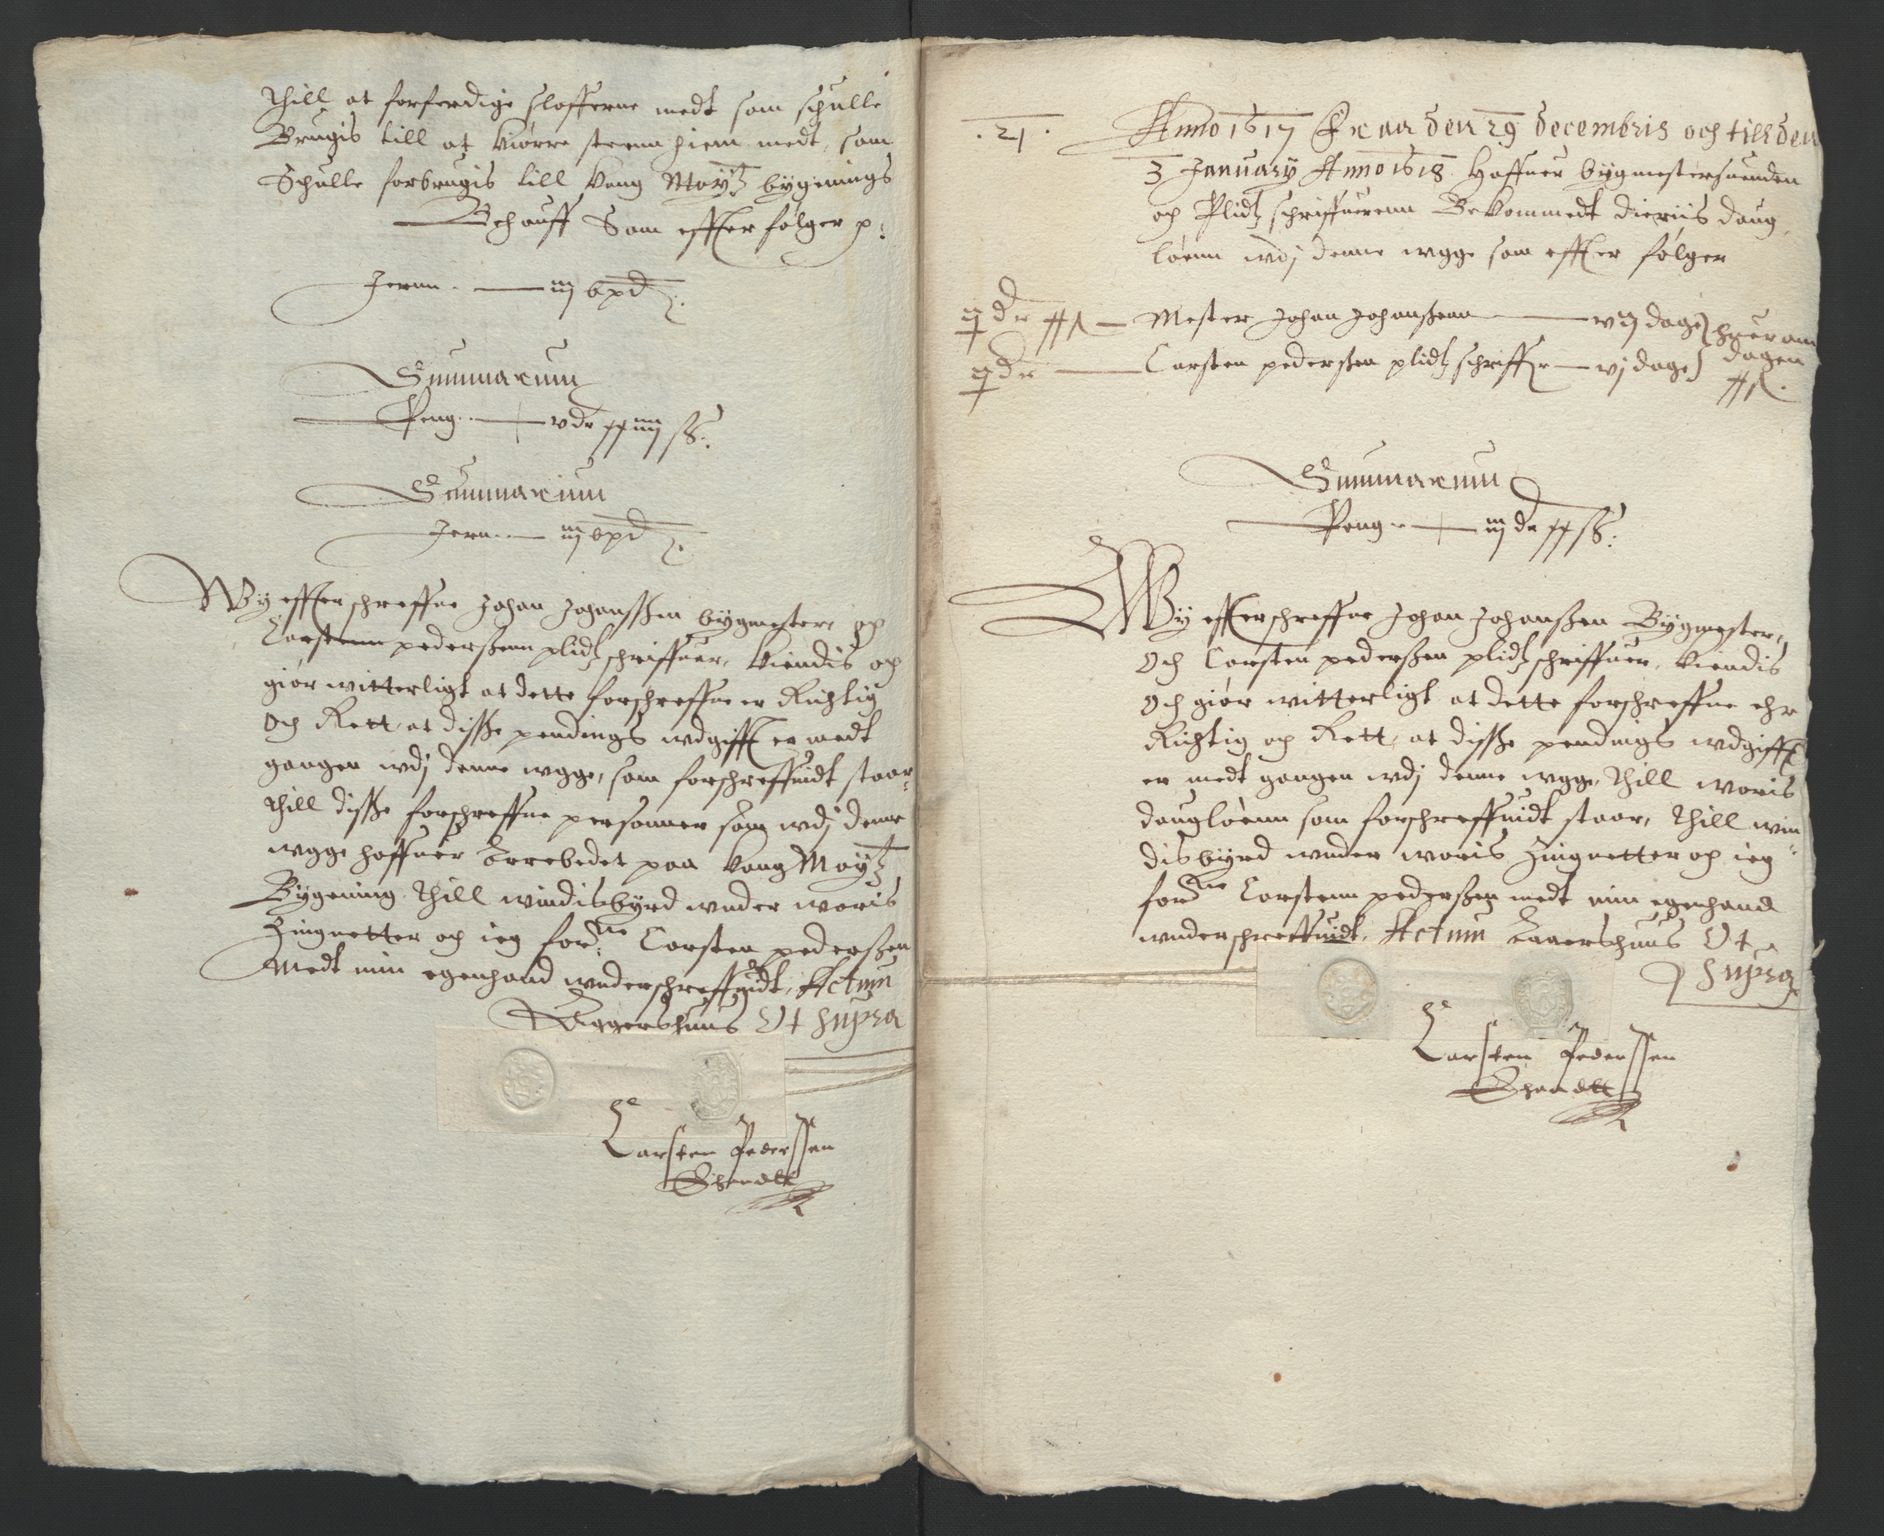 Thill at forferdige slofferne medt som schulle
Brugis till at kiørre steenn hiem medt, som
Schulle forbrugis till Kong Maytz bygnings
Behouff Som effter følger p:
Jernn — iiij bpd
Summarum
Peng — v dr xx iiij ß:
Summarum
Jern — iiij bpd
Wy effterschreffne Johan Johanssen bygmester, och
Carstenn pederßenn plidtz schriffuer, kiendis och
giør witterligt at dette forschreffne er Richtig
Och Rett, at disße pendings wdgifft er medt
gangen wdj denne wgge, som forschreffuidt staar
thill disße forschreffne personner som wdj denne
wgge haffuer Arrebedet paa Kong Maytz
Bygening. Thill windisbyrd wnder woris
Zingnetter och ieg for: ne Carsten pederßen
Medt min egenhand wnderschreffuidt, Actum
Aggershuus Vt supra
Carsten Pederssen
Schandtt
. 21 .
Anno 1617 Fraa den 29 decembris och till den
3 January Anno 1618 Haffuer bygmestersuenden
och Plidtz schriffuerenn Bekommedt dieriis daug
løenn wdj denne wgge som effter følger
Mester Johan Johanßenn — vij dage huer om
Carsten pederßen plidtz schriffuer — vj dage dagen
Summarum
Peng — iiij dr xx ß:
Wy effterschreffne Johan Johanßen Bygmester,
Och Carsten pederßen plidtz schriffuer, kiendis
Och giør witterligt at dette forschreffne ehr
Richtig och Rett, at disße pendings wdgifft
er medt gangen wdj denne wgge, Thill woris
daugløenn som forschreffuidt staar, Thill win
disbyrd wnder woris Zingnetter och ieg
for ne Carstenn pederßen medt min egenhand
wnderschreffuidt, Actum Aggershuus Vt
Supra
Carsten Pederssen
Schandtt